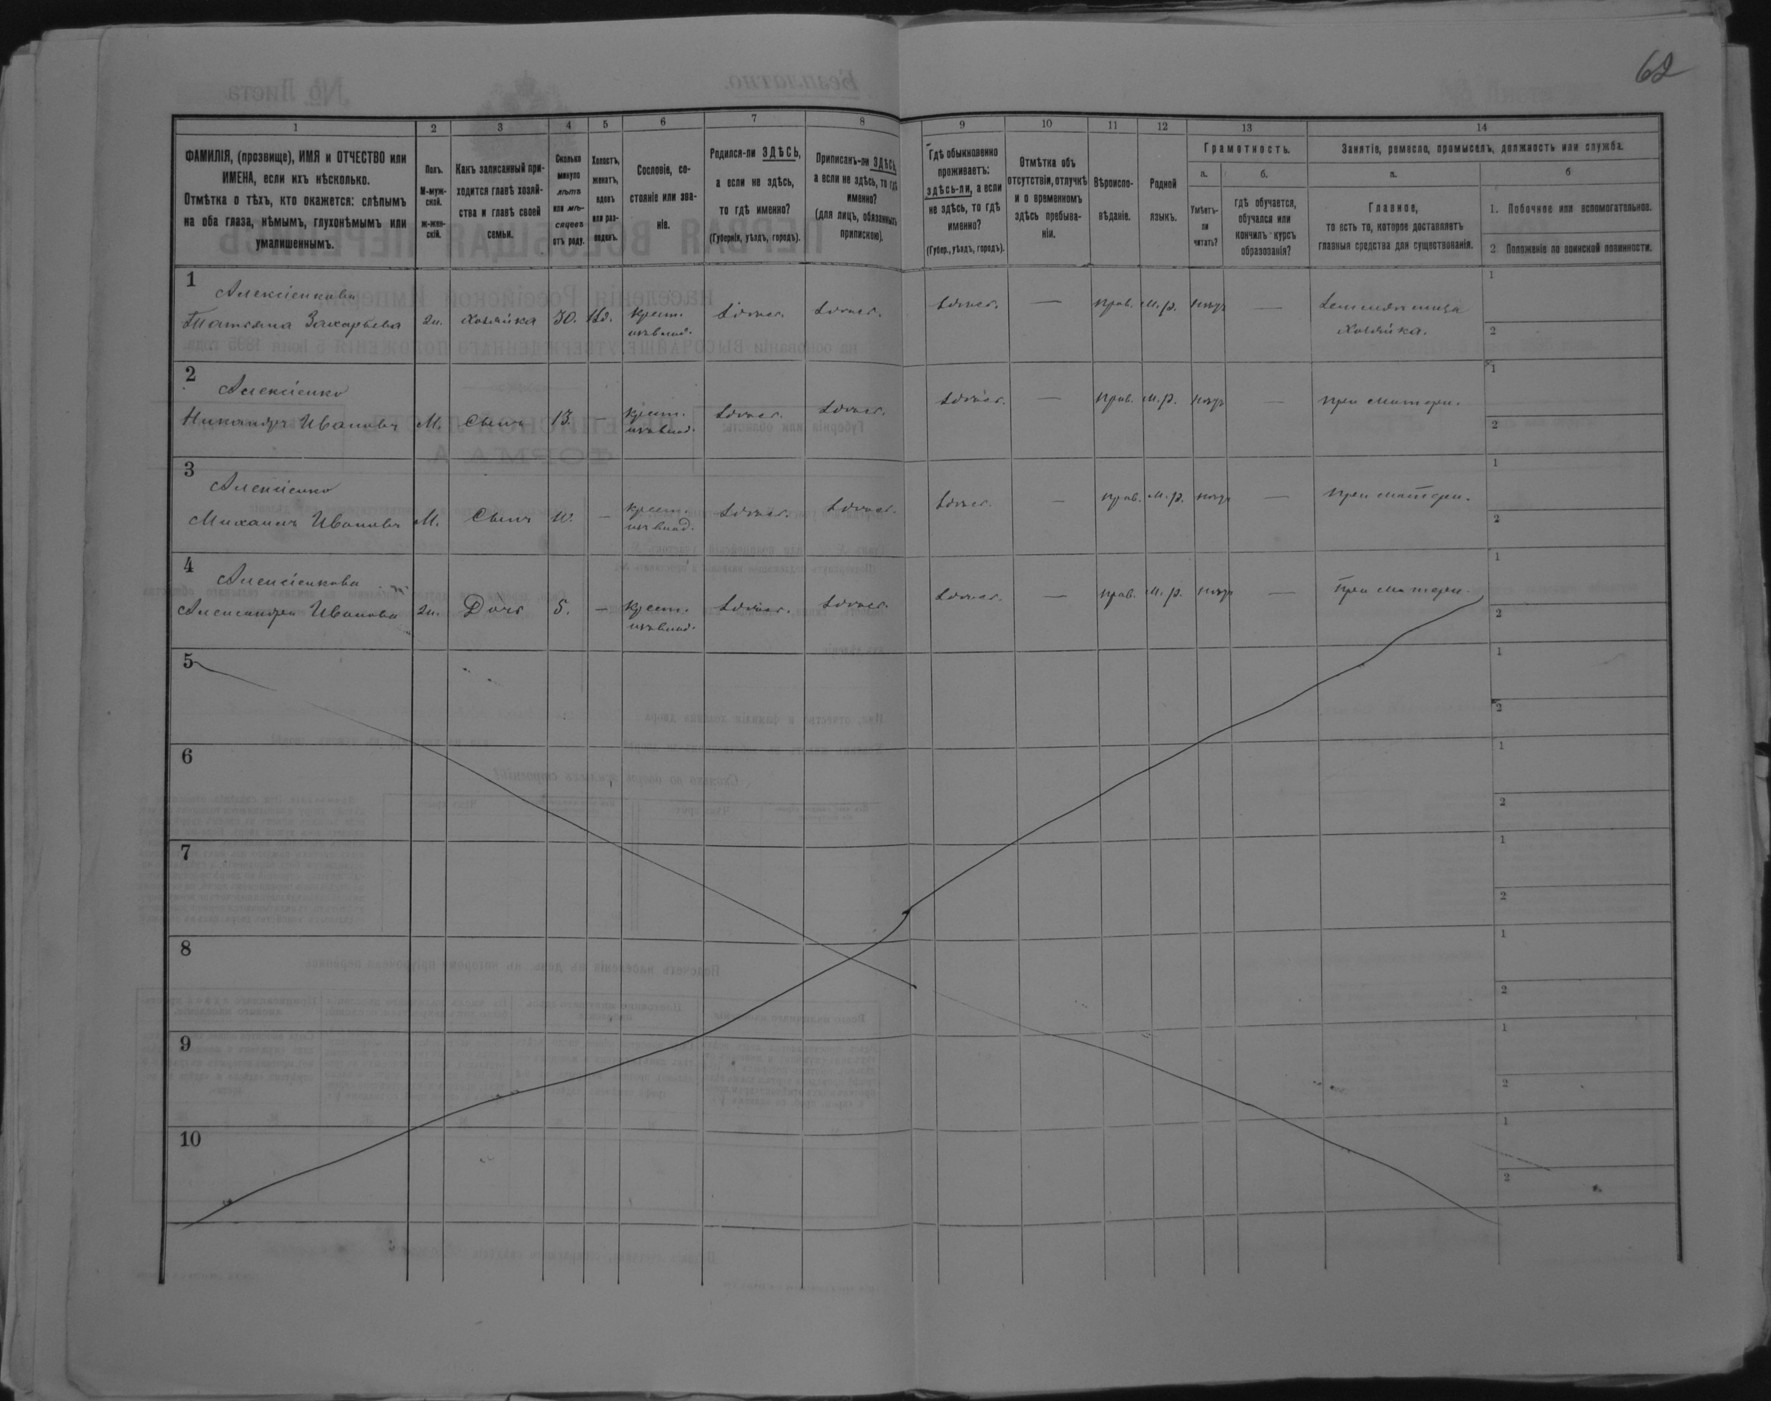 62
1
2
3
4
5
6
7
8
9
10
11
12
13
14
ФАМИЛІЯ, (прозвище), ИМЯ и ОТЧЕСТВО или
ИМЕНА, если ихъ нѣсколько.
Отмѣтка о тѣхъ, кто окажется: слѣпымъ
на оба глаза, нѣмымъ, глухонѣмымъ или
умалишеннымъ.
Полъ.
М-муж-
ской.
ж-жен-
скій.
Какъ записанный при-
ходится главѣ хозяй-
ства и главѣ своей
семьи.
Сколько
минуло
лѣтъ
или мѣ-
сяцевъ
отъ роду.
Холостъ,
женатъ,
вдовъ
или раз-
веденъ.
Сословіе, со-
стояніе или зва-
ніе.
Родился-ли ЗДѢСЬ,
а если не здѣсь,
то гдѣ именно?
(Губернія, уѣздъ, городъ).
Приписанъ-ли ЗДѢСЬ,
а если не здѣсь, то гдѣ
именно?
(для лицъ, обязанныхъ
припискою).
Гдѣ обыкновенно
проживаетъ:
здѣсь-ли, а если
не здѣсь, то гдѣ
именно?
(Губер., уѣздъ, городъ).
Отмѣтка объ
отсутствіи, отлучкѣ
и о временномъ
здѣсь пребыва-
ніи.
Вѣроиспо-
вѣданіе.
Родной
языкъ.
Грамотность.
а.
Умѣетъ-
ли
читать?
б.
гдѣ обучается,
обучался или
кончилъ курсъ
образованія?
Занятіе, ремесло, промыселъ, должность или служба.
а.
Главное,
то есть то, которое доставляетъ
главныя средства для существованія.
б
1. Побочное или вспомогательное.
2 Положеніе по воинской повинности.
1
Алексіенкова
Татьяна Захарьева
ж.
хозяйка
30.
вд.
крест.
изъ влад.
здѣсь.
здѣсь.
здѣсь.
—
прав.
м.р.
нѣтъ
—
хозяйка.
1
2
2
Алексіенко
Никаноръ Ивановъ
М.
Сынъ
13.
—
крест.
изъ влад.
здѣсь.
здѣсь.
здѣсь.
—
прав.
м.р.
нѣтъ
—
при матери.
1
2
3
Алексіенко
Михаилъ Ивановъ
М.
Сынъ
10.
—
крест.
изъ влад.
здѣсь.
здѣсь.
здѣсь.
—
прав.
м.р.
нѣтъ
—
при матери.
1
2
4
Алексіенкова
Александра Иванова
ж.
Дочь
5.
—
крест.
изъ влад.
здѣсь.
здѣсь.
здѣсь.
—
прав.
м.р.
нѣтъ
—
при матери.
1
2
5
1
2
6
1
2
7
1
2
8
1
2
9
1
2
10
1
2